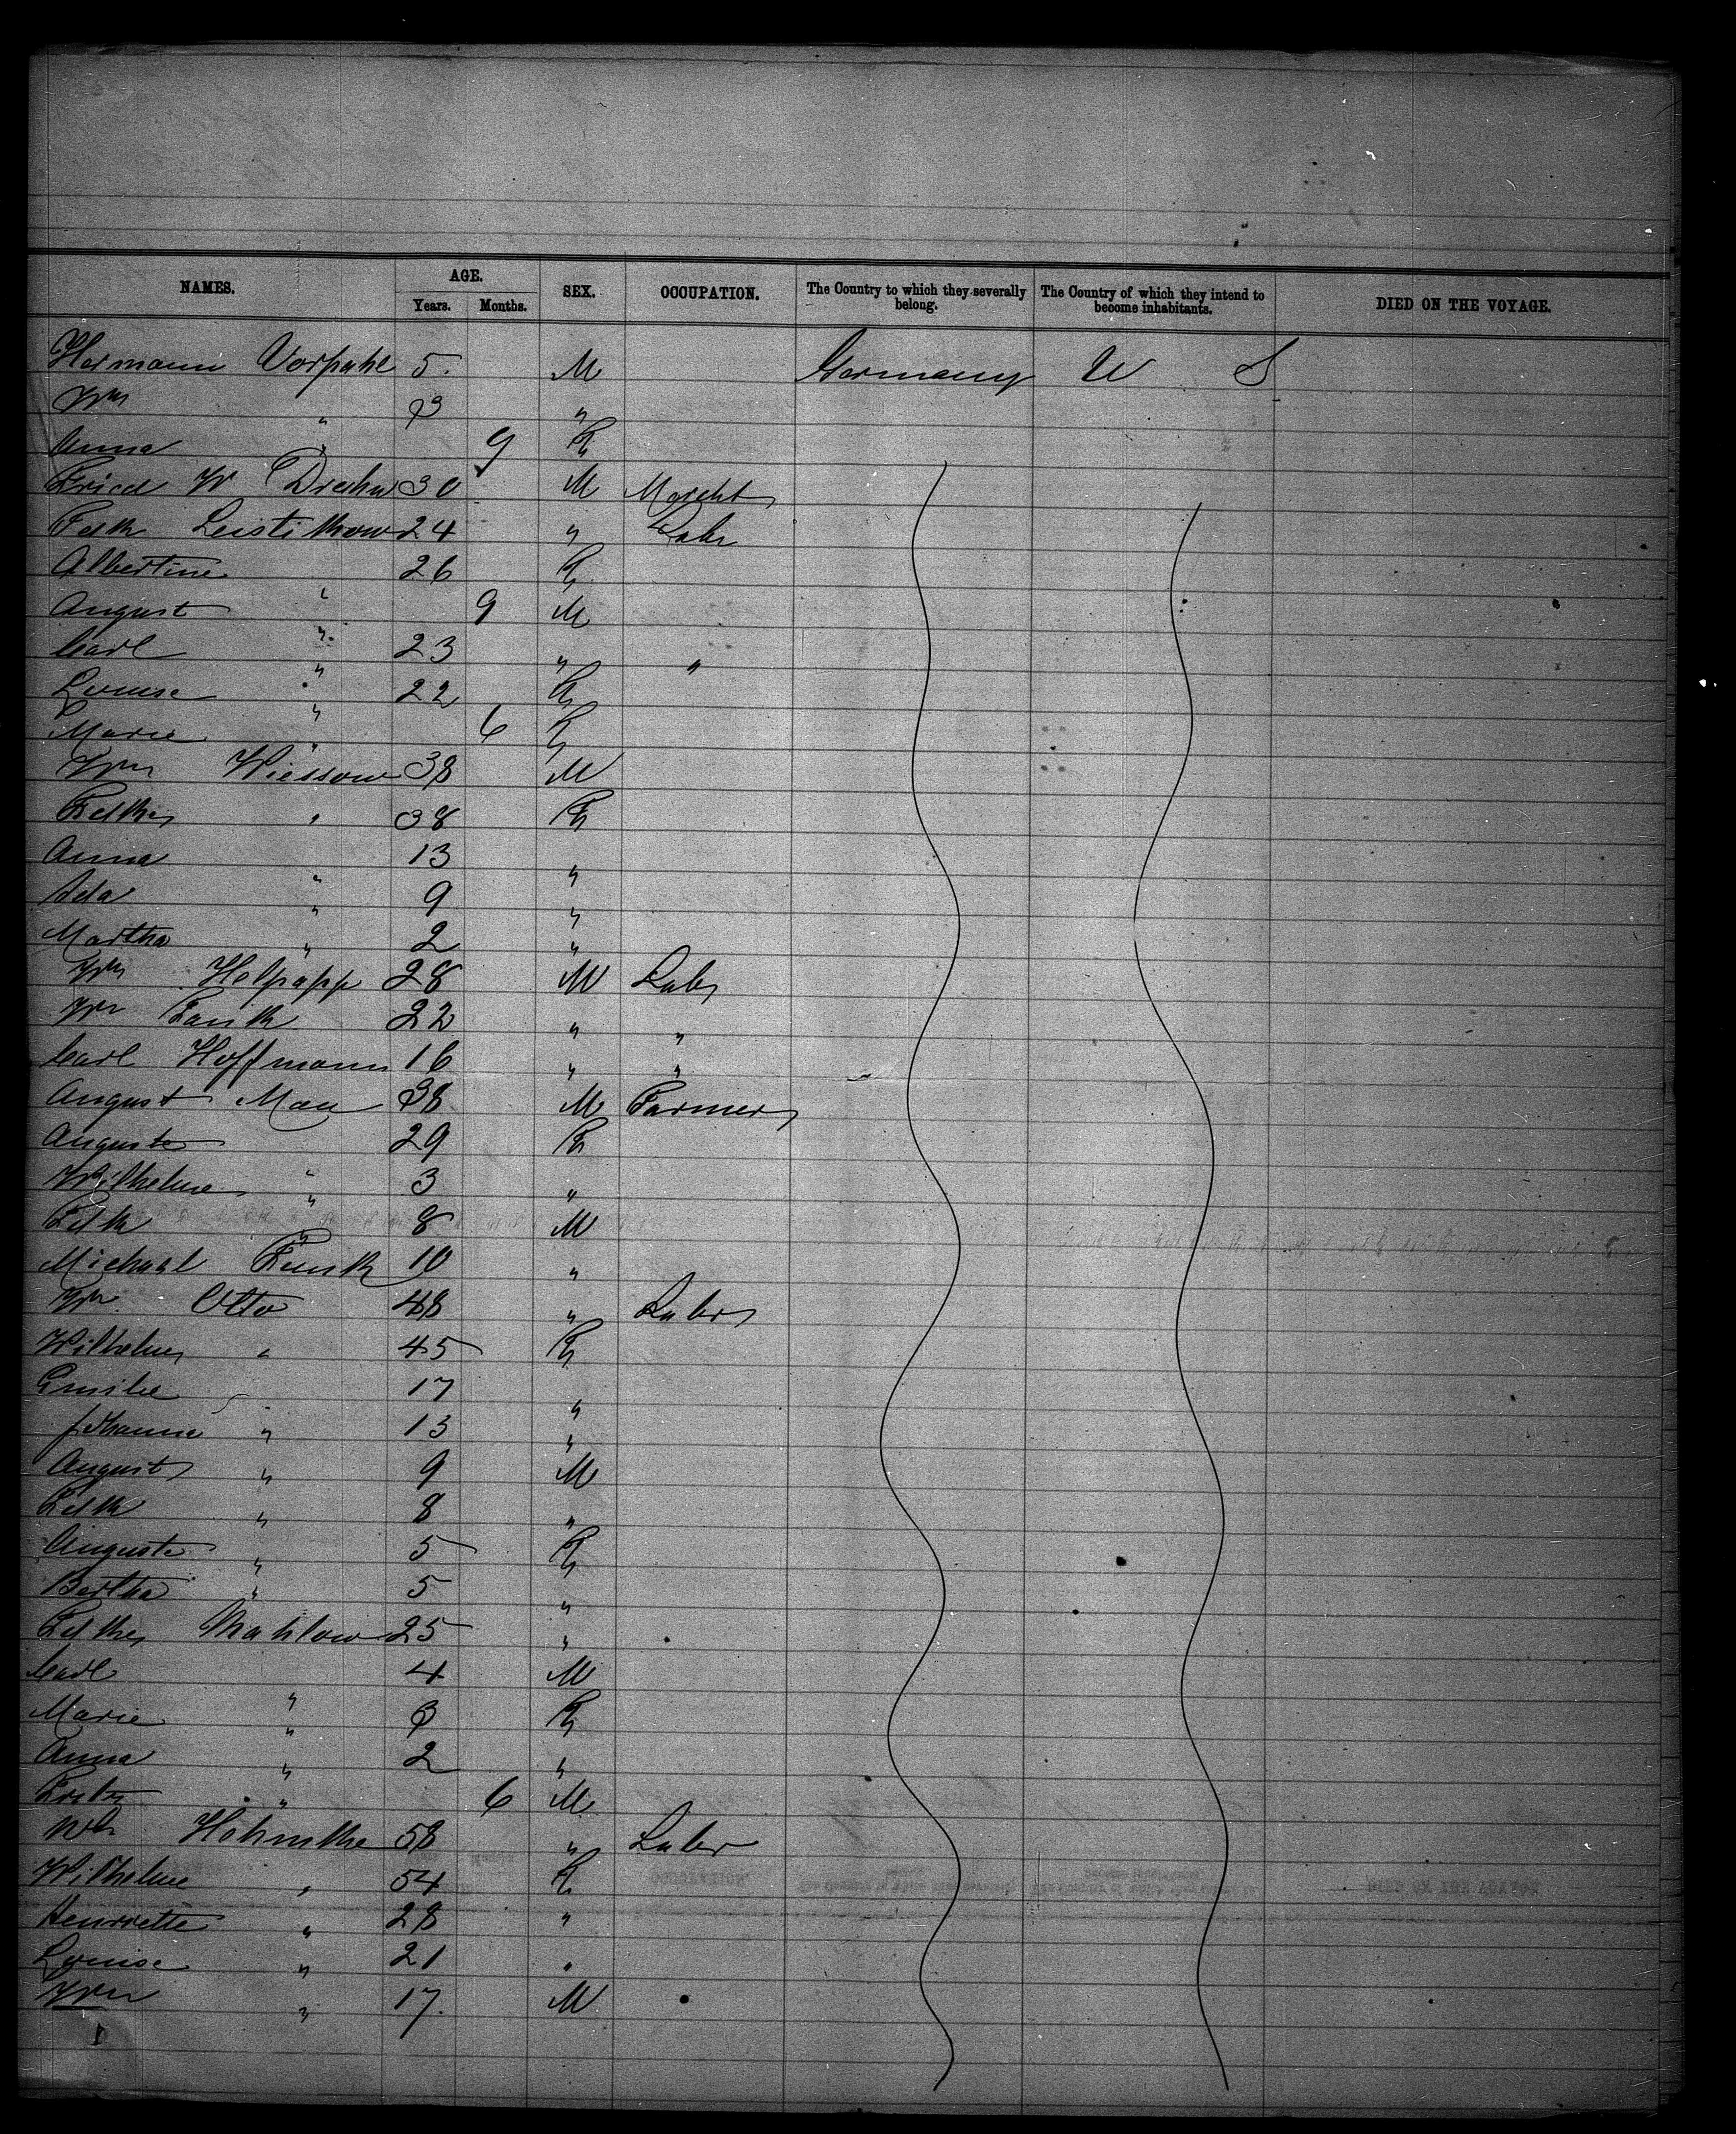 NAMES. AGE. SEX. OCCUPATION. The Country to which they severally belong. The Country of which they intend to become inhabitants. DIED ON THE VOYAGE.
Years. Months.
Hermann Vorpahl 5 M Germany U S
Wm " 3 "
Anna " 9 F
Fried W Drehn 30 M Marcht
Fdk Leistikow 24 " Labr
Albertine " 26 F
August " 9 M
Carl " 23 " "
Louise " 22 F
Marie " 6 F
Wm Wiessow 38 M
Fdke " 38 F
Anna " 13 "
Ida " 9 "
Martha " 2 "
Wm Helpapp 28 M Labr
Wm Fank 22 " "
Carl Hoffmann 16 " "
August Mau 38 M Farmer
Auguste " 29 F
Wilhelme " 3 "
Fdk " 8 M
Michael Funk 10 "
Wm Otto 48 " Labr
Wilhelme " 45 F
Emilie " 17 "
Johanna " 13 "
August " 9 M
Fdk " 8 "
Auguste " 5 F
Bertha " 5 "
Fdke Mahlow 25 "
Carl " 4 M
Marie " 3 F
Anna " 2 "
Fritz " 6 M
Wm Hohmthe 58 " Labr
Wilhelme " 54 F
Henriette " 28 "
Louise " 21 "
Wm " 17 M